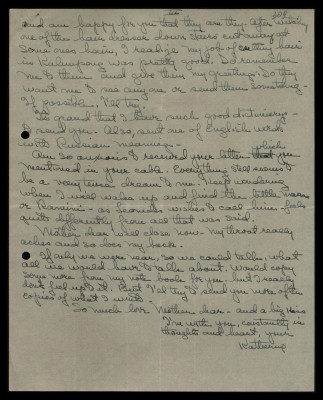 and am happy for you that they are thy. After watching
one of their hair dresser down stairs cut away at
some ones hair, I realize my job of cutting hair
in Kalimpong was pretty good. Do remember
me to them and give them my greetings. Do they
want me to see anyone or send them something -
if possible, I'll try.
So grand that I have such good dictionary -
I send you. Also, sent one of English words
with Russian meanings -
Am so anxious I received your letter which you
mentioned in your cable. Everything still seems
be a nightmare dream to me. Keep wondering
when I will wake up and find the little
or Ramincs - as wishes I call him - feels
quite differently from all that was said.
Mother dear will close now - my throat really
aches and so does my back.
If only we were near, so we could talk, what
all we would have to talk about. Would copy
some more from my note book for you - but I really
don't feel up to it. But I'll try to send you more often
copies of what I write -
So much love Mother dear - and a big kiss
I'm with you, constantly in
thoughts and heart, your
Katherine